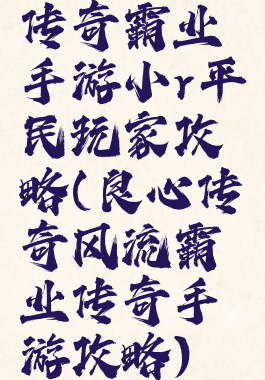 传奇霸业
手游小r平
民玩家攻
略(良心传
奇风流霸
业传奇手
游攻略)